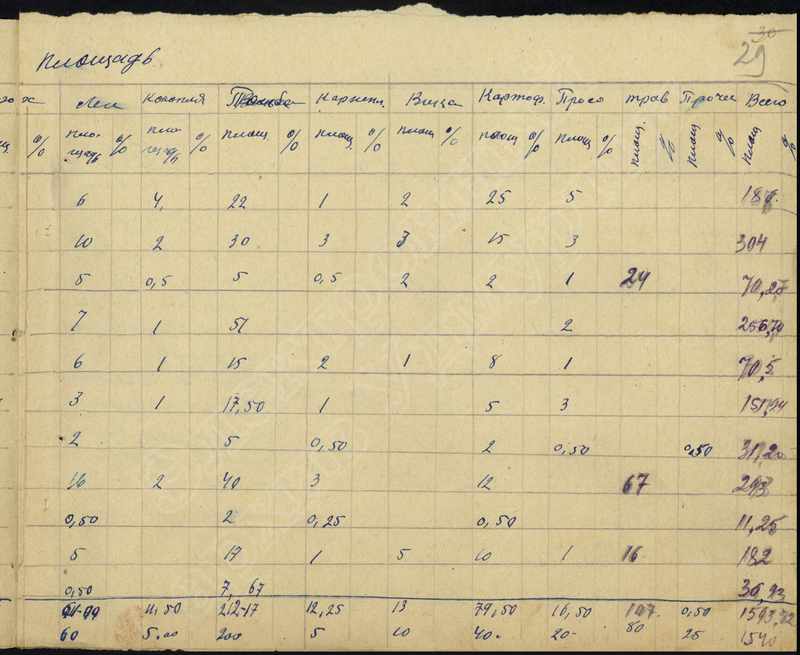 30
29
площадь
Лен Конопля Карнепл. Вика Картоф. Просо трав Прочи Всего
% пло-щадь % пло-щадь % площ. % площ. % площ % площ % площ % площ. % площ % площ %
6 4, 22 1 2 25 5
10 2 30 3 3 15 3 304
5 0,5 5 0,5 2 2 1 24 70,25
7 1 51 2
6 1 15 2 1 8 1 70,5
3 1 17,50 1 5 3
2 5 0,50 2 0,50 0,50 31,20
16 2 40 3 12 67 293
0,50 2 0,25 0,50 11,25
5 17 1 5 10 1 16 182
0,50 7,67
11,50 212-17 12,25 13 79,50 16,50 107 0,50 1593,92
60 5.00 200 5 10 40. 20- 80 25 1540